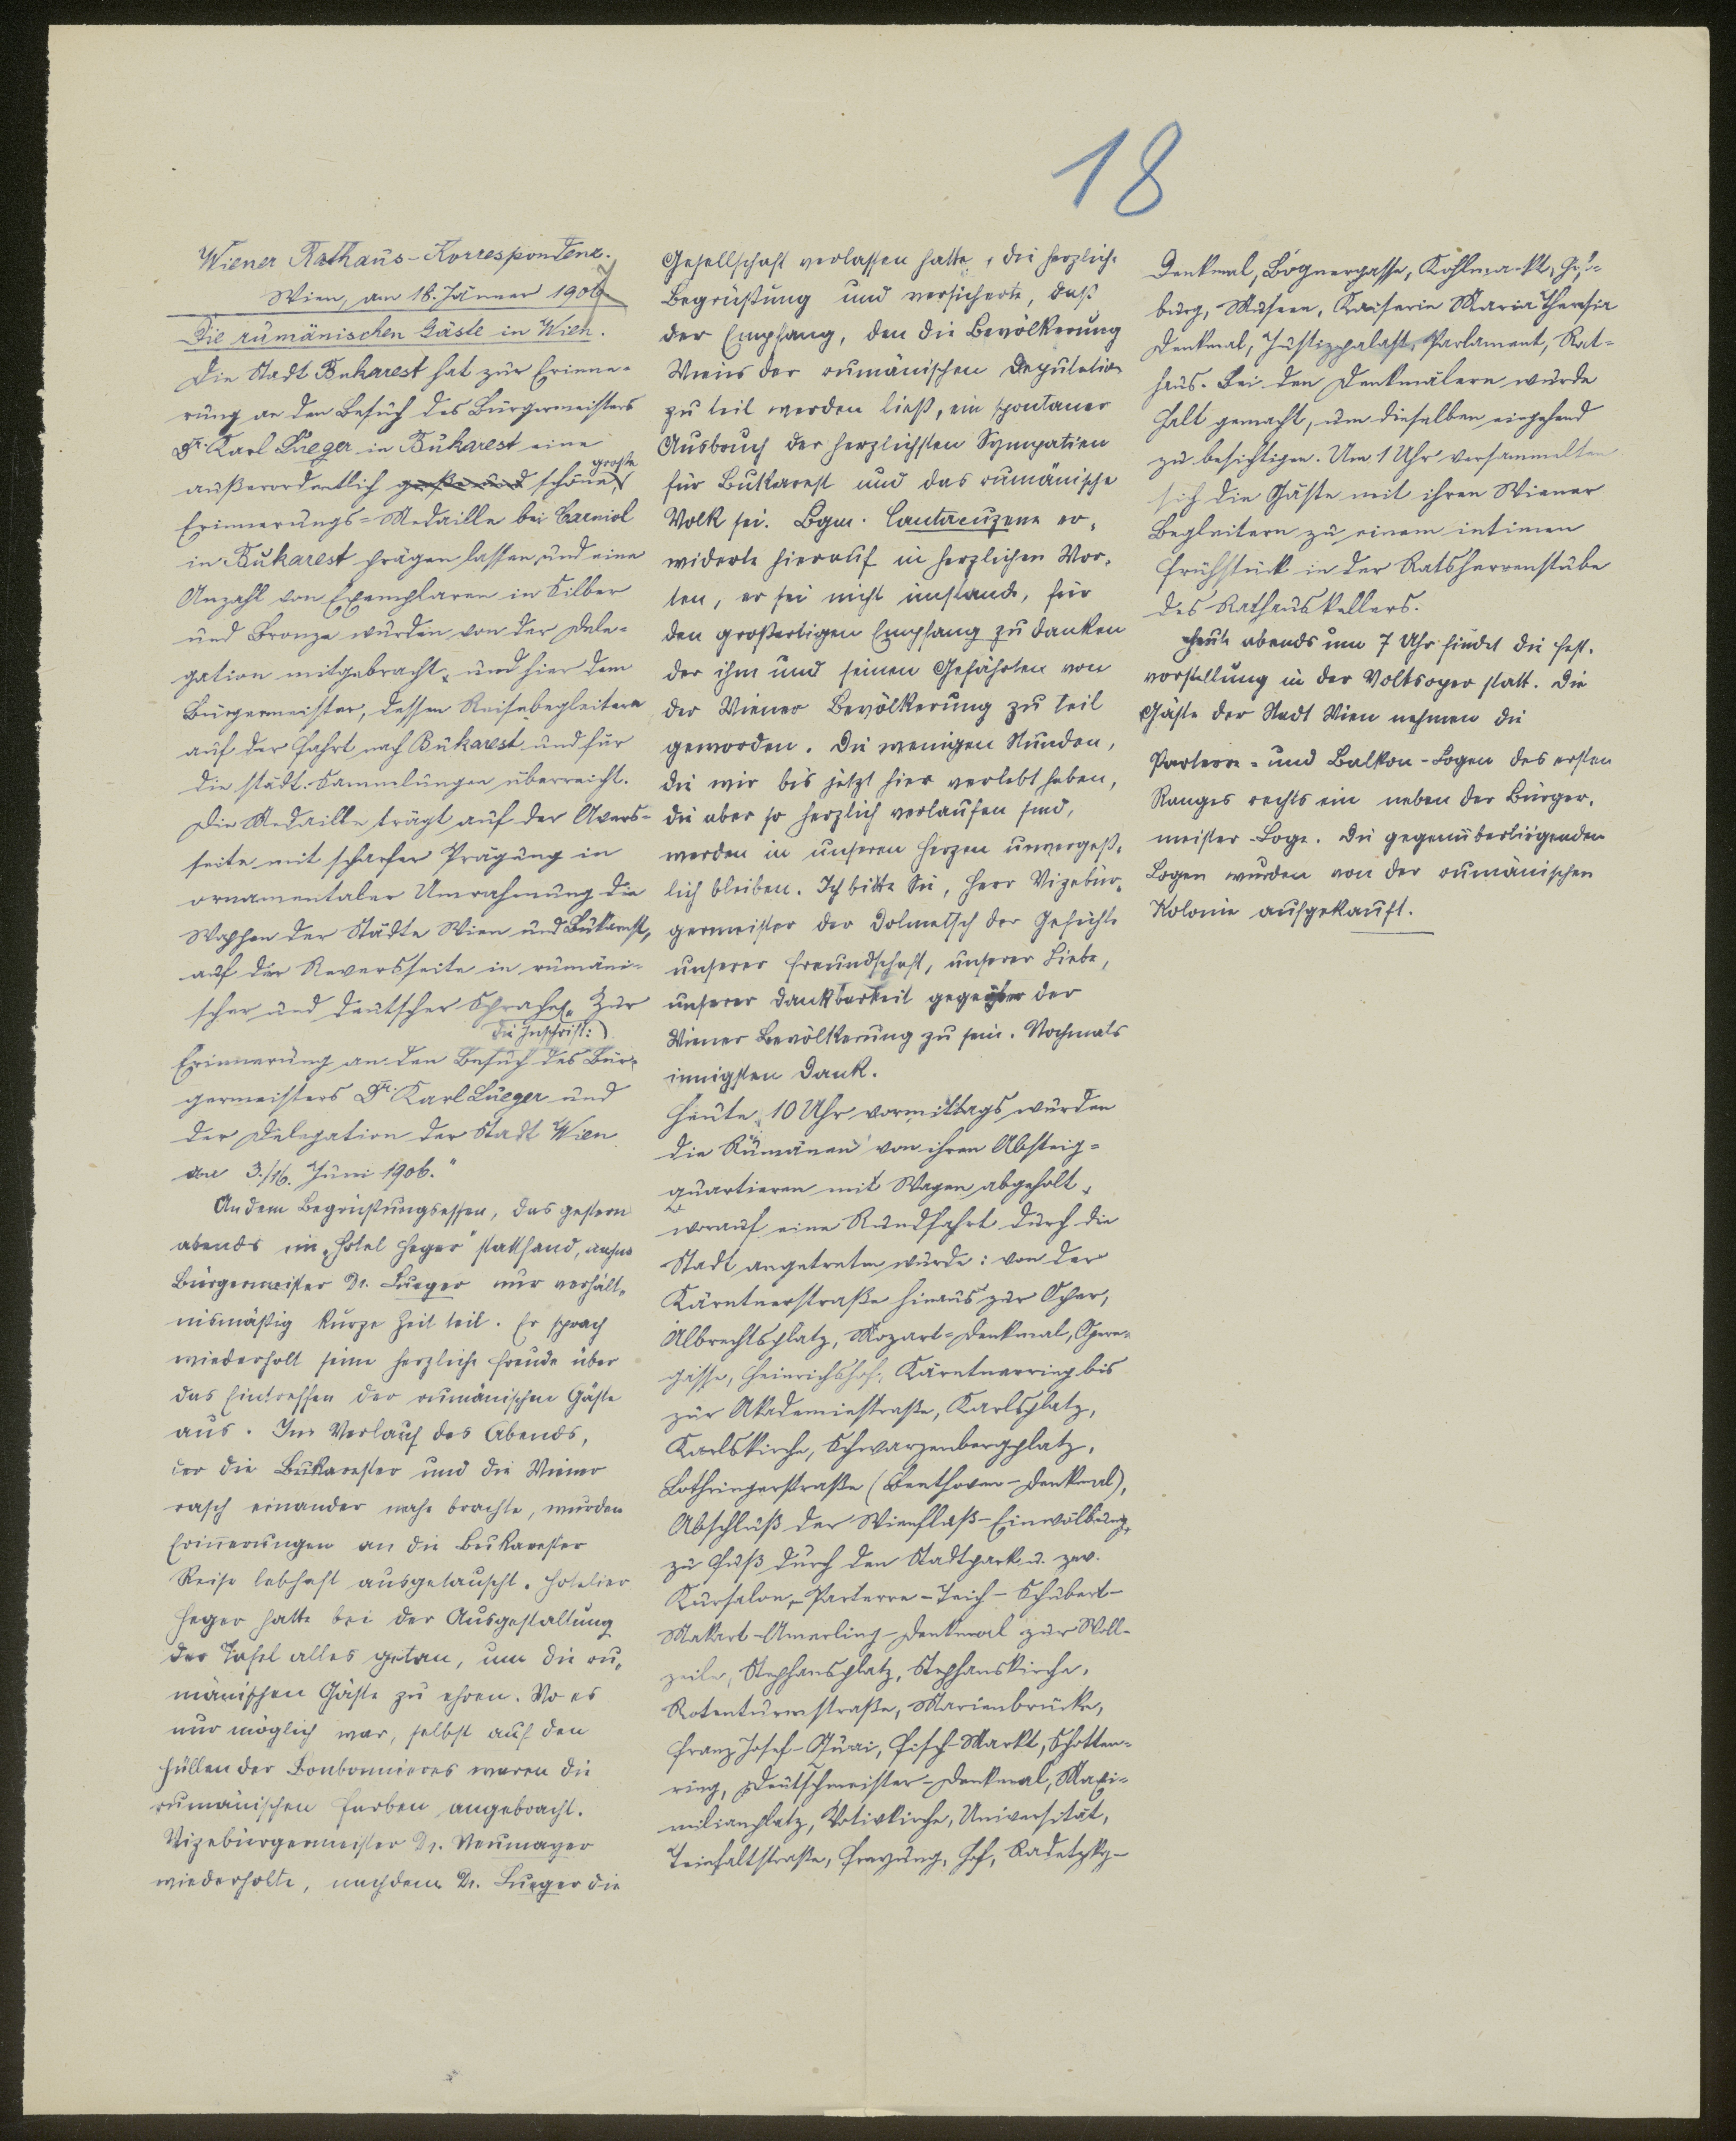 18
Wiener Rathaus-Korrespondenz.
Wien, am 18. Jänner 1907
Die rumänischen Gäste in Wien.
Die Stadt Bukarest hat zur Erinne-
rung an den Besuch des Bürgermeisters
Dr. Karl Lueger in Bukarest eine
große
außerordentlich große und schöne
Erinnerungs-Medaille bei Carniol
in Bukarest prägen lassen und eine
Anzahl von Exemplaren in Silber
und Bronze wurden von der Dele-
gation mitgebracht und hier dem
Bürgermeister, dessen Reisebegleitern
auf der Fahrt nach Bukarest und für
die städt. Sammlungen überreicht.
Die Medaille trägt auf der Avers-
seite mit scharfer Prägung in
ornamentaler Umrahmung die
Wappen der Städte Wien und Bukarest,
auf der Reversseite in rumäni-
scher und deutscher Sprache „Zur
die Inschrift:
Erinnerung an den Besuch des Bür-
germeisters Dr. Karl Lueger und
der Delegation der Stadt Wien
am 3./16. Juni 1906."
An dem Begrüßungsessen, das gestern
abends im „Hotel Heger" stattfand, nahm
Bürgermeister Dr. Lueger nur verhält-
nismäßig kurze Zeit teil. Er sprach
wiederholt seine herzliche Freude über
das Eintreffen der rumänischen Gäste
aus. Im Verlauf des Abends,
der die Bukarester und die Wiener
rasch einander nahe brachte, wurden
Erinnerungen an die Bukarester
Reise lebhaft ausgetauscht. Hotelier
Heger hatte bei der Ausgestaltung
der Tafel alles getan, um die ru-
mänischen Gäste zu ehren. Wo es
nur möglich war, selbst auf den
Hüllen der Bonbonnieres waren die
rumänischen Farben angebracht.
Vizebürgermeister Dr. Neumayer
wiederholte, nachdem Dr. Lueger die
Gesellschaft verlassen hatte, die herzliche
Begrüßung und versicherte, daß
der Empfang, den die Bevölkerung
Wiens der rumänischen Deputation
zu teil werden ließ, ein spontaner
Ausbruch der herzlichsten Sympatien
für Bukarest und das rumänische
Volk sei. Bgm. Cantacuzene er-
widerte hierauf in herzlichen Wor-
ten, er sei nicht imstande, für
den großartigen Empfang zu danken
der ihm und seinen Gefährten von
der Wiener Bevölkerung zu teil
geworden. Die wenigen Stunden,
die wir bis jetzt hier verlebt haben,
die aber so herzlich verlaufen sind,
werden in unseren Herzen unvergeß-
lich bleiben. Ich bitte Sie, Herr Vizebür-
germeister der Dolmetsch der Gefühle
unserer Freundschaft, unserer Liebe,
unserer Dankbarkeit gegenüber der
Wiener Bevölkerung zu sein. Nochmals
innigsten Dank.
Heute 10 Uhr vormittags wurden
die Rumänen von ihren Absteig-
quartieren mit Wagen abgeholt,
worauf eine Rundfahrt durch die
Stadt angetreten wurde: von der
Kärntnerstraße hinaus zur Oper,
Albrechtsplatz, Mozart-Denkmal, Opern-
gasse, Heinrichshof, Kärntnerring bis
zur Akademiestraße, Karlsplatz,
Karlskirche, Schwarzenbergplatz,
Lothringerstraße (Beethoven-Denkmal),
Abschluß der Wienfluß-Einwölbung,
zu Fuß durch den Stadtpark u. zw.
Kursalon-Parterre-Teich-Schubert-
Makart-Amerling-Denkmal zur Woll-
zeile, Stephansplatz, Stephanskirche,
Rotenturmstraße, Marienbrücke,
Franz Josef-Quai, Fisch-Markt, Schotten-
ring, Deutschmeister-Denkmal, Maxi-
milianplatz, Votivkirche, Universität,
Teinfaltstraße, Freyung, Hof, Radetzky-
Denkmal, Bognergasse, Kohlmarkt, Hof-
burg, Museen, Kaiserin Maria Theresia
Denkmal, Justizpalast, Parlament, Rat-
haus. Bei den Denkmälern wurde
Halt gemacht, um dieselben eingehend
zu besichtigen. Um 1 Uhr versammelten
sich die Gäste mit ihren Wiener
Begleitern zu einem intimen
Frühstück in der Ratsherrenstube
des Rathauskellers.
Heute abends um 7 Uhr findet die Fest-
vorstellung in der Volksoper statt. Die
Gäste der Stadt Wien nehmen die
Parterre- und Balkon-Logen des ersten
Ranges rechts ein neben der Bürger-
meister-Loge. Die gegenüberliegenden
Logen wurden von der rumänischen
Kolonie aufgekauft.